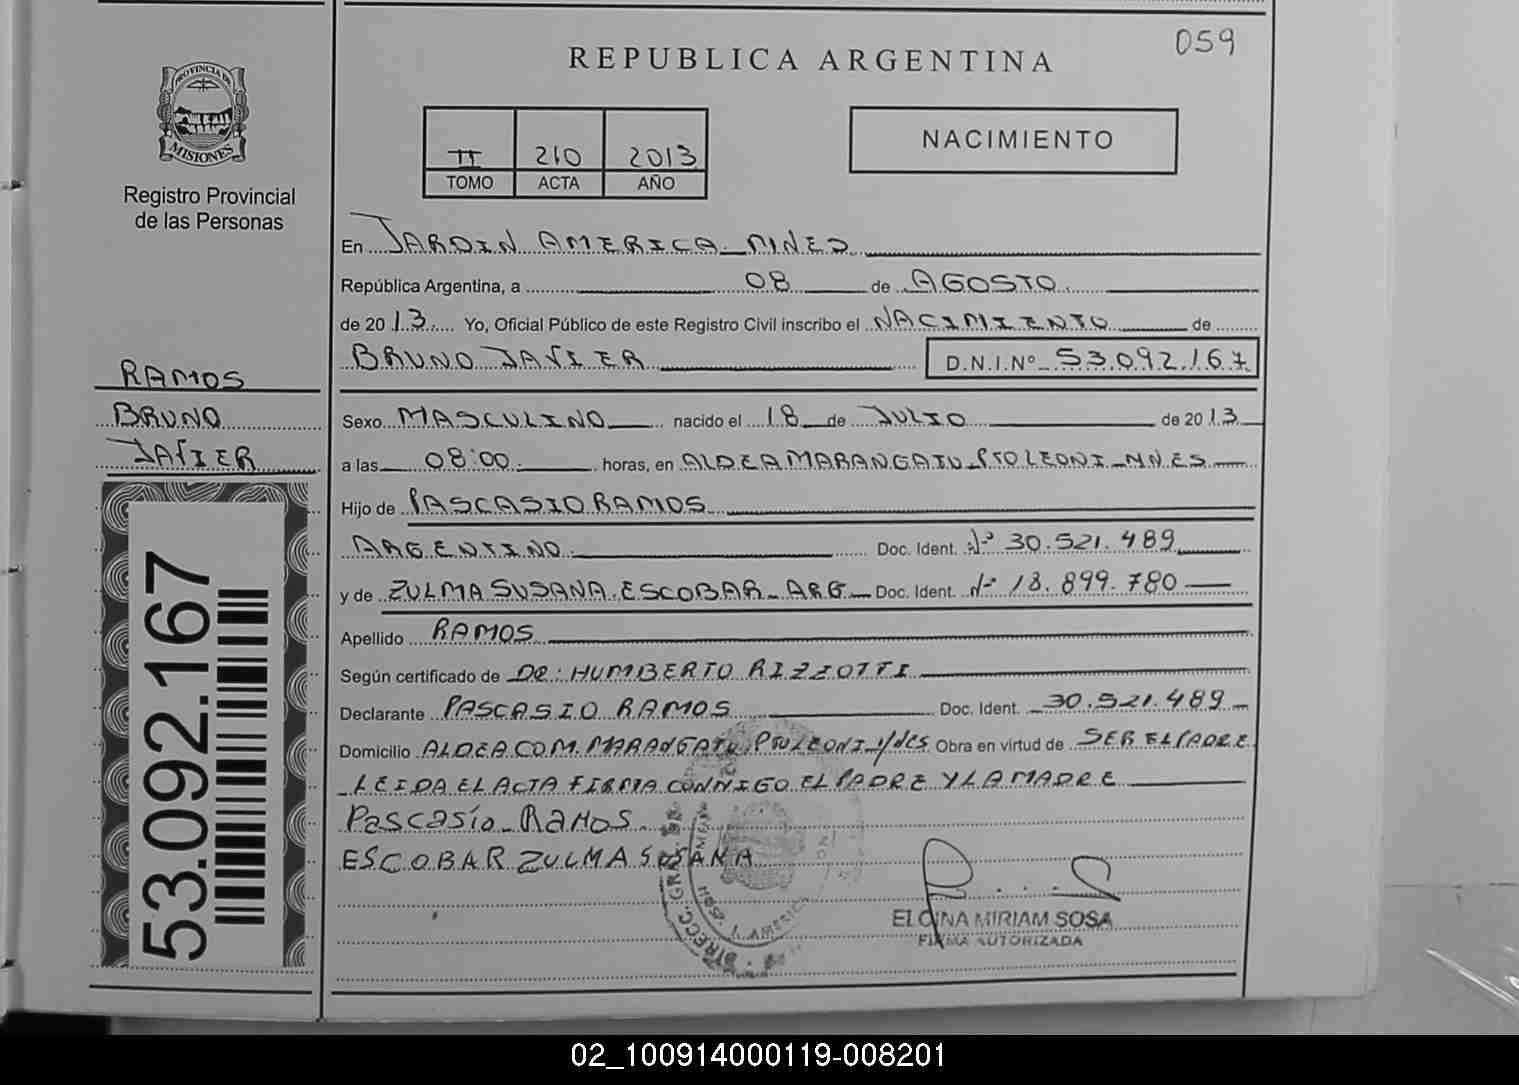 059
REPUBLICA ARGENTINA
PROVINCIA DE
MISIONES
Registro Provincial
de las Personas
II 210 2013
TOMO ACTA AÑO
NACIMIENTO
En JARDIN AMERICA MNES
República Argentina, a 08 de AGOSTO
de 2013 Yo, Oficial Público de este Registro Civil inscribo el NACIMIENTO de
BRUNO JAVIER D.N.I.Nº 53.092.167
RAMOS
BRUNO
JAVIER
53.092.167
Sexo MASCULINO nacido el 18 de JULIO de 2013
a las 08:00 horas, en ALDEA MARANGATU PTO LEONI MNES
Hijo de PASCASIO RAMOS
ARGENTINO Doc. Ident. Nº 30.521.489
y de ZULMA SUSANA ESCOBAR ARG Doc. Ident. Nº 18.899.780
Apellido RAMOS
Según certificado de DR: HUMBERTO RIZZOTTI
Declarante PASCASIO RAMOS Doc. Ident. 30.521.489
Domicilio ALDEA COM. MARANGATU PTO LEONI Obra en virtud de SER EL PADRE
LEIDA EL ACTA FIRMA CONMIGO EL PADRE Y LA MADRE
PascasÍo RAMOS
ESCOBAR ZULMA SUSANA
DIRECC. GRAL. DEL
J. AMERICA
ELGINA MIRIAM SOSA
FIRMA AUTORIZADA
02_100914000119-008201